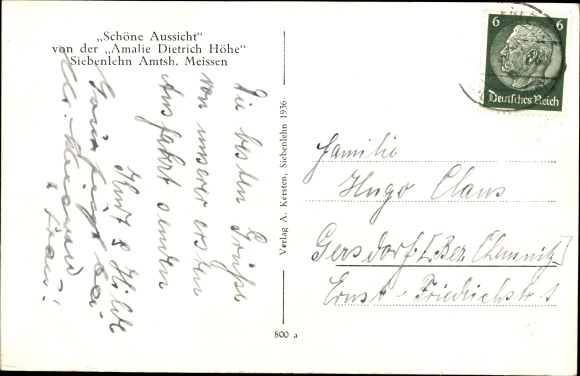 „Schöne Aussicht"
von der „Amalie Dietrich Höhe"
Siebenlehn Amtsh. Meissen
Die besten Grüße
von unserer ersten
Ausfahrt senden
Kurt & Hilde
u. Frau!
Verlag A. Kersten, Siebenlehn 1936
800 a
6 6
Deutsches Reich
Familie
Hugo Claus
Gersdorf. [Bez. Chemnitz]
Ernst-Friedrichstr